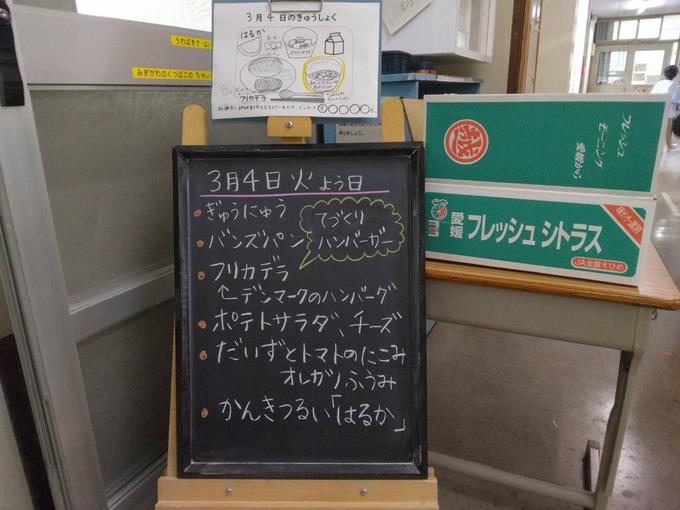 3月4日のきゅうしょく
はるか
フリカデラ
うわばきで はい
みぎがわのくつばこの ちゃい
3月4日 火よう日
ぎゅうにゅう
バンズパン
てづくり
ハンバーガー
フリカデラ
デンマークのハンバーグ
ポテトサラダ、チーズ
だいずとトマトのにこみ
オレガノふうみ
かんきつるい「はるか」
フレッシュ
モーニング
愛媛から
愛媛 フレッシュ シトラス
JA全農えひめ